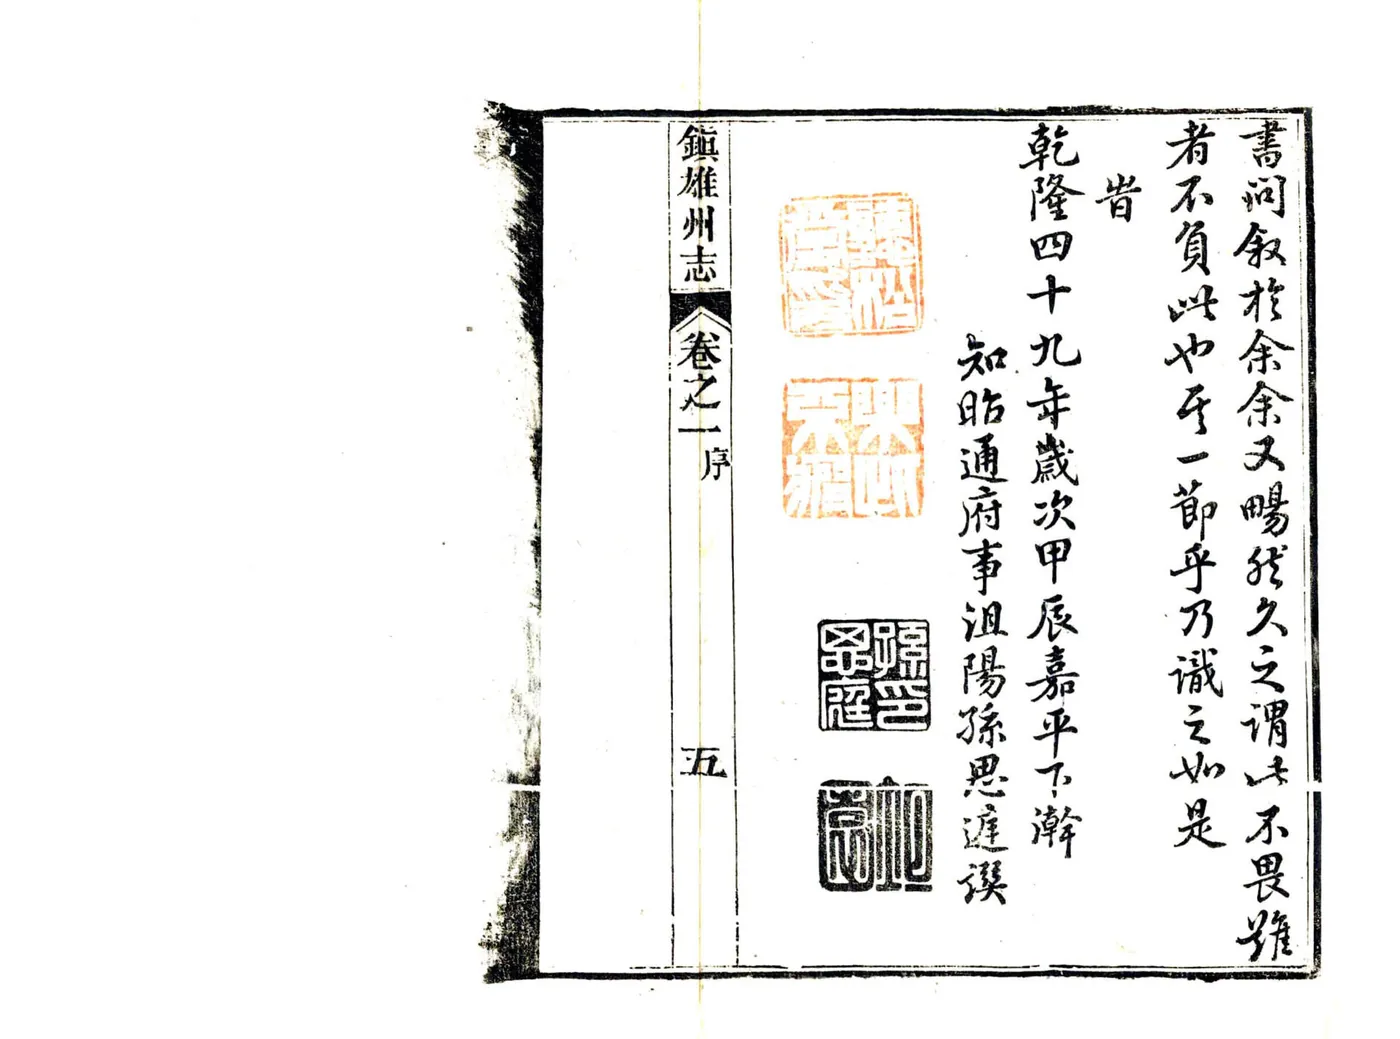 書问叙於余余又暢然久之谓此不畏難
者不負此也其一節乎乃識之如是
旹
乾隆四十九年歲次甲辰嘉平下澣
知昭通府事沮陽孫思庭撰
孫印思庭
鎮雄州志
卷之一
序
五